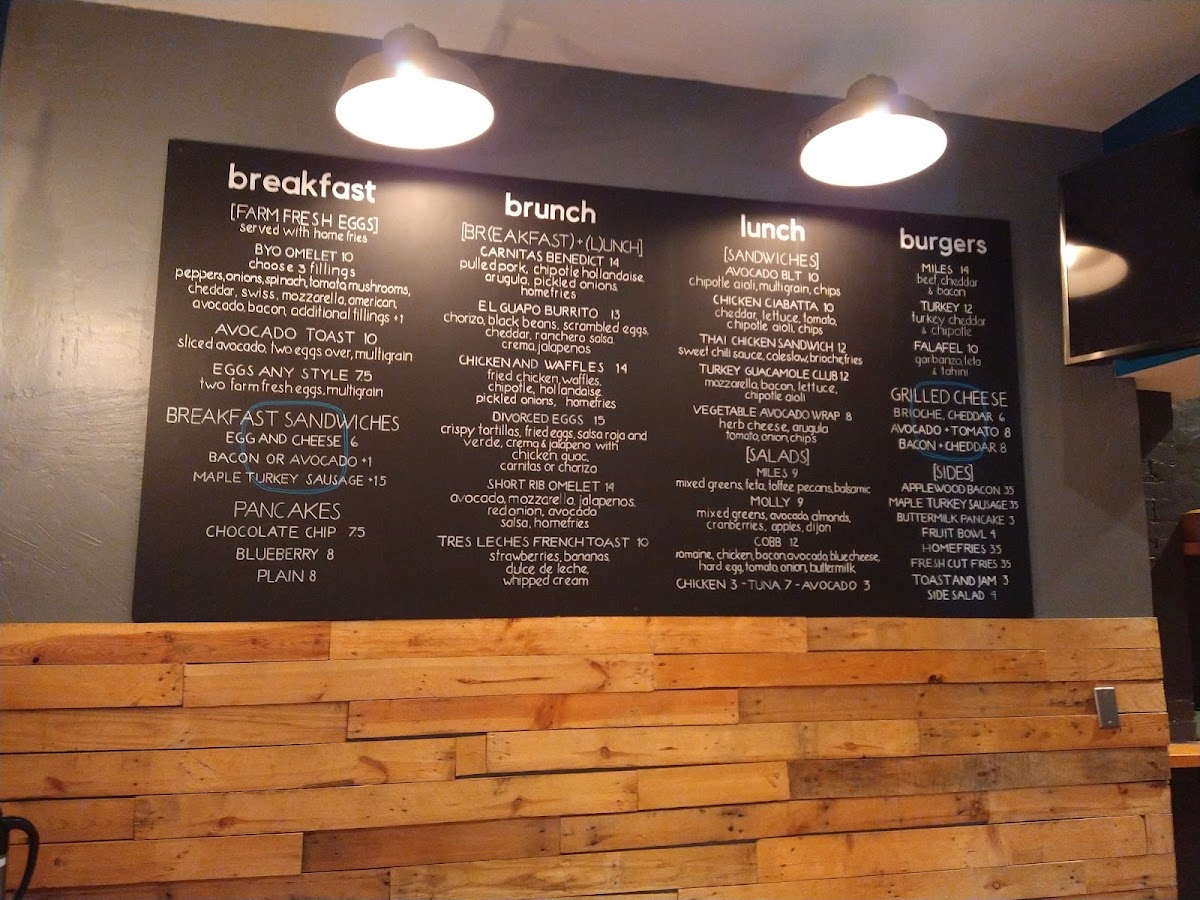 breakfast
[FARM FRESH EGGS]
served with home fries
BYO OMELET 10
choose 3 fillings
peppers, onions, spinach, tomato, mushrooms,
cheddar, swiss, mozzarella, american,
avocado, bacon, additional fillings +1
AVOCADO TOAST 10
sliced avocado, two eggs over, multigrain
EGGS ANY STYLE 7.5
two farm fresh eggs, multigrain
BREAKFAST SANDWICHES
EGG AND CHEESE 6
BACON OR AVOCADO +1
MAPLE TURKEY SAUSAGE +1.5
PANCAKES
CHOCOLATE CHIP 7.5
BLUEBERRY 8
PLAIN 8
brunch
[BR(EAKFAST) + (L)UNCH]
CARNITAS BENEDICT 14
pulled pork, chipotle hollandaise,
arugula, pickled onions,
homefries
EL GUAPO BURRITO 13
chorizo, black beans, scrambled eggs,
cheddar, ranchero salsa,
crema, jalapenos
CHICKEN AND WAFFLES 14
fried chicken, waffles,
chipotle, hollandaise
pickled onions, homefries
DIVORCED EGGS 15
crispy tortillas, fried eggs, salsa roja and
verde, crema & jalapeno with
chicken, guac,
carnitas or chorizo
SHORT RIB OMELET 14
avocado, mozzarella, jalapenos,
red onion, avocado
salsa, homefries
TRES LECHES FRENCH TOAST 10
strawberries, bananas,
dulce de leche,
whipped cream
lunch
[SANDWICHES]
AVOCADO BLT 10
chipotle aioli, multigrain, chips
CHICKEN CIABATTA 10
cheddar, lettuce, tomato,
chipotle aioli, chips
THAI CHICKEN SANDWICH 12
sweet chili sauce, coleslaw, brioche, fries
TURKEY GUACAMOLE CLUB 12
mozzarella, bacon, lettuce,
chipotle aioli
VEGETABLE AVOCADO WRAP 8
herb cheese, arugula
tomato, onion, chips
[SALADS]
MILES 9
mixed greens, feta, toffee pecans, balsamic
MOLLY 9
mixed greens, avocado, almonds,
cranberries, apples, dijon
COBB 12
romaine, chicken, bacon, avocado, blue cheese,
hard egg, tomato, onion, buttermilk
CHICKEN 3 - TUNA 7 - AVOCADO 3
burgers
MILES 14
beef, cheddar
& bacon
TURKEY 12
turkey, cheddar
& chipotle
FALAFEL 10
garbanzo, feta
& tahini
GRILLED CHEESE
BRIOCHE, CHEDDAR 6
AVOCADO + TOMATO 8
BACON + CHEDDAR 8
[SIDES]
APPLEWOOD BACON 3.5
MAPLE TURKEY SAUSAGE 3.5
BUTTERMILK PANCAKE 3
FRUIT BOWL 4
HOMEFRIES 3.5
FRESH CUT FRIES 3.5
TOAST AND JAM 3
SIDE SALAD 4